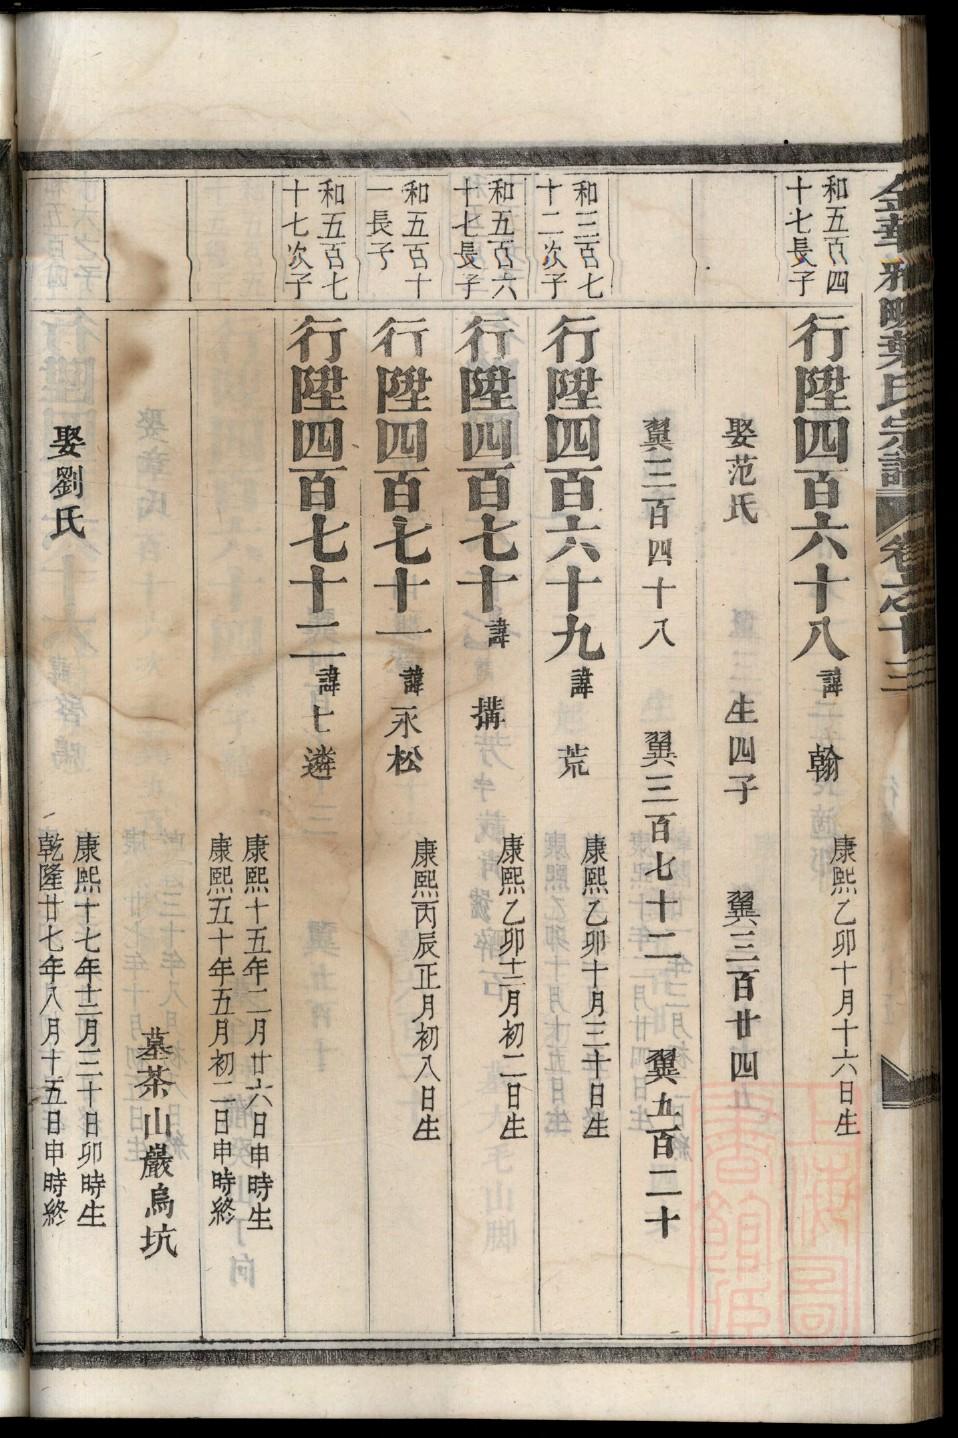 金華雅畈葉氏宗譜 卷之十三
和五百四
十七長子
行陞四百六十八 諱 翰 康熙乙卯十月十六日生
娶范氏 生四子 翼三百廿四
翼三百四十八 翼三百七十二 翼五百二十
和三百七
十二次子
行陞四百六十九 諱 荒 康熙乙卯十月三十日生
和五百六
十七長子
行陞四百七十 諱 搆 康熙乙卯十二月初二日生
和五百十
一長子
行陞四百七十一 諱 永松 康熙丙辰正月初八日生
和五百七
十七次子
行陞四百七十二 諱 七遴
康熙十五年二月廿六日申時生
康熙五十年五月初二日申時終
墓茶山巖烏坑
娶劉氏
康熙十七年十二月三十日卯時生
乾隆廿七年八月十五日申時終
上海圖
書館藏